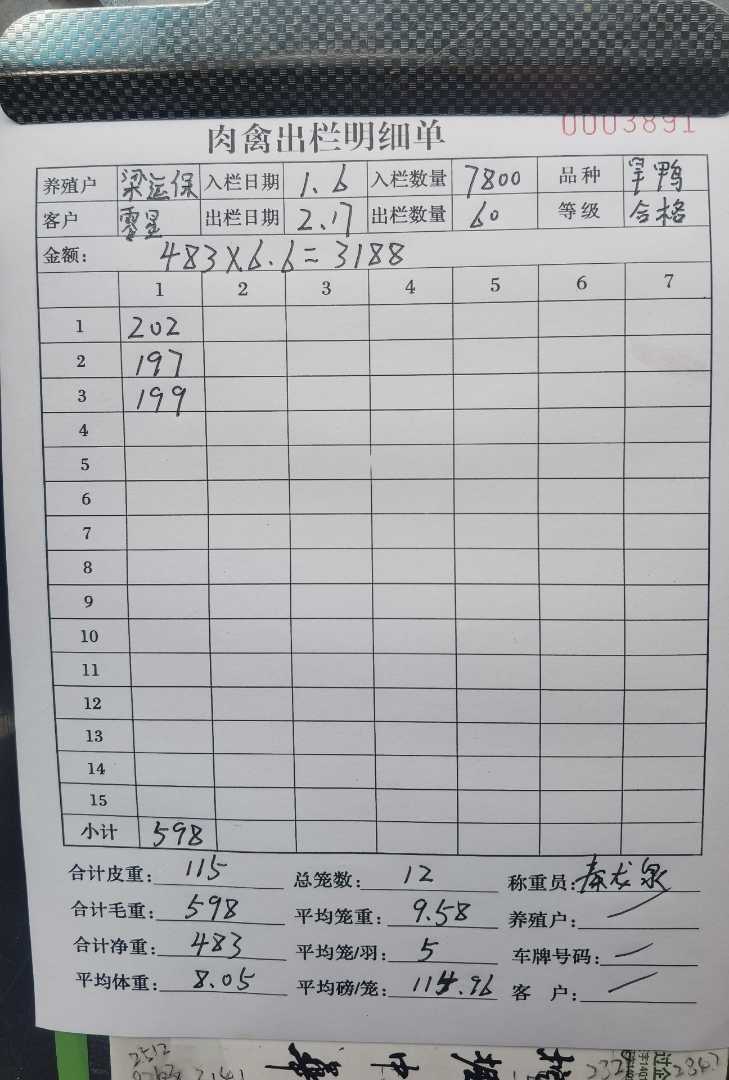 0003891
肉禽出栏明细单
养殖户 梁运保 入栏日期 1.6 入栏数量 7800 品种 旱鸭
客户 零星 出栏日期 2.17 出栏数量 60 等级 合格
金额： 483×6.6=3188
1 2 3 4 5 6 7
1 202
2 197
3 199
4
5
6
7
8
9
10
11
12
13
14
15
小计 598
合计皮重： 115 总笼数： 12 称重员： 秦龙泉
合计毛重： 598 平均笼重： 9.58 养殖户：
合计净重： 483 平均笼/羽： 5 车牌号码：
平均体重： 8.05 平均磅/笼： 114.96 客 户：
2512